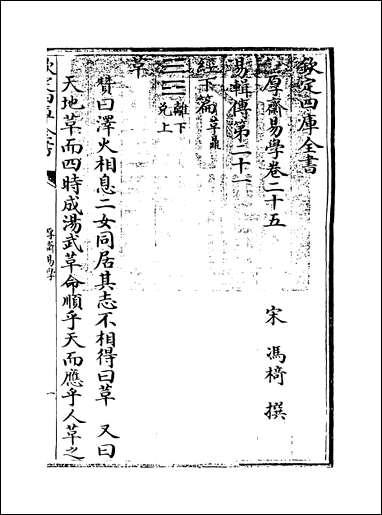 欽定四庫全書
厚齋易學卷二十五
宋 馮椅 撰
易輯傳第二十一
經下篇革鼎
離下
兌上
革
贊曰澤火相息二女同居其志不相得曰革 又曰
天地革而四時成湯武革命順乎天而應乎人革之
欽定四庫全書
厚齋易學
一